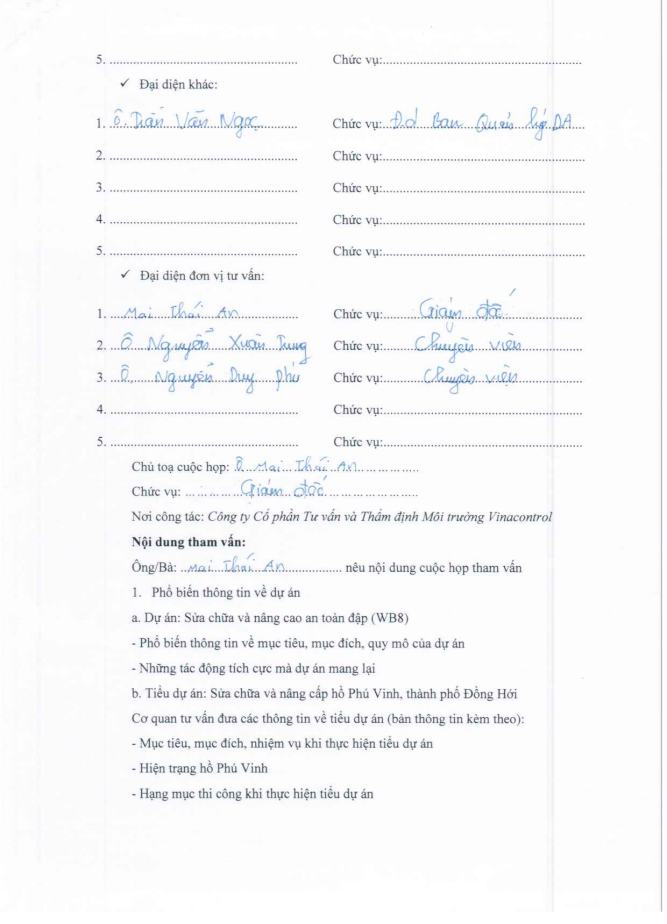 5. ........................ Chức vụ:........................
✓ Đại diện khác:
1. Ô. Trần Văn Ngọc Chức vụ: Đ.d Ban Quản lý DA
2. ........................ Chức vụ:........................
3. ........................ Chức vụ:........................
4. ........................ Chức vụ:........................
5. ........................ Chức vụ:........................
✓ Đại diện đơn vị tư vấn:
1. Mai Thái An Chức vụ: Giám đốc
2. Ô Nguyễn Xuân Trung Chức vụ: Chuyên viên
3. Ô. Nguyễn Duy Phú Chức vụ: Chuyên viên
4. ........................ Chức vụ:........................
5. ........................ Chức vụ:........................
Chủ toạ cuộc họp: Ô. Mai Thái An
Chức vụ: Giám đốc
Nơi công tác: Công ty Cổ phần Tư vấn và Thẩm định Môi trường Vinacontrol
Nội dung tham vấn:
Ông/Bà: Mai Thái An nêu nội dung cuộc họp tham vấn
1. Phổ biến thông tin về dự án
a. Dự án: Sửa chữa và nâng cao an toàn đập (WB8)
- Phổ biến thông tin về mục tiêu, mục đích, quy mô của dự án
- Những tác động tích cực mà dự án mang lại
b. Tiểu dự án: Sửa chữa và nâng cấp hồ Phú Vinh, thành phố Đồng Hới
Cơ quan tư vấn đưa các thông tin về tiểu dự án (bản thông tin kèm theo):
- Mục tiêu, mục đích, nhiệm vụ khi thực hiện tiểu dự án
- Hiện trạng hồ Phú Vinh
- Hạng mục thi công khi thực hiện tiểu dự án